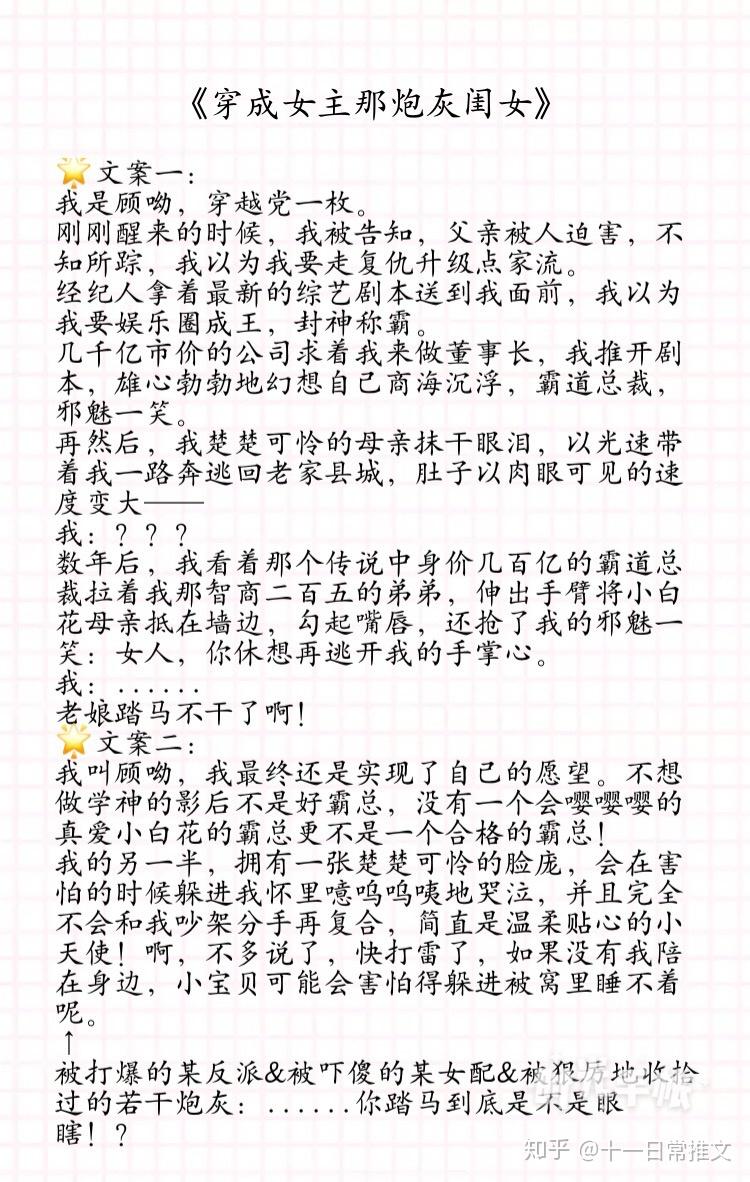 《穿成女主那炮灰闺女》
🌟文案一：
我是顾呦，穿越党一枚。
刚刚醒来的时候，我被告知，父亲被人迫害，不
知所踪，我以为我要走复仇升级点家流。
经纪人拿着最新的综艺剧本送到我面前，我以为
我要娱乐圈成王，封神称霸。
几千亿市价的公司求着我来做董事长，我推开剧
本，雄心勃勃地幻想自己商海沉浮，霸道总裁，
邪魅一笑。
再然后，我楚楚可怜的母亲抹干眼泪，以光速带
着我一路奔逃回老家县城，肚子以肉眼可见的速
度变大——
我：？？？
数年后，我看着那个传说中身价几百亿的霸道总
裁拉着我那智商二百五的弟弟，伸出手臂将小白
花母亲抵在墙边，勾起嘴唇，还抢了我的邪魅一
笑：女人，你休想再逃开我的手掌心。
我：......
老娘踏马不干了啊！
🌟文案二：
我叫顾呦，我最终还是实现了自己的愿望。不想
做学神的影后不是好霸总，没有一个会嘤嘤嘤的
真爱小白花的霸总更不是一个合格的霸总！
我的另一半，拥有一张楚楚可怜的脸庞，会在害
怕的时候躲进我怀里噫呜呜咦地哭泣，并且完全
不会和我吵架分手再复合，简直是温柔贴心的小
天使！啊，不多说了，快打雷了，如果没有我陪
在身边，小宝贝可能会害怕得躲进被窝里睡不着
呢。
↑
被打爆的某反派&被吓傻的某女配&被狠厉地收拾
过的若干炮灰：......你踏马到底是不是眼
瞎！？
知乎 @十一日常推文